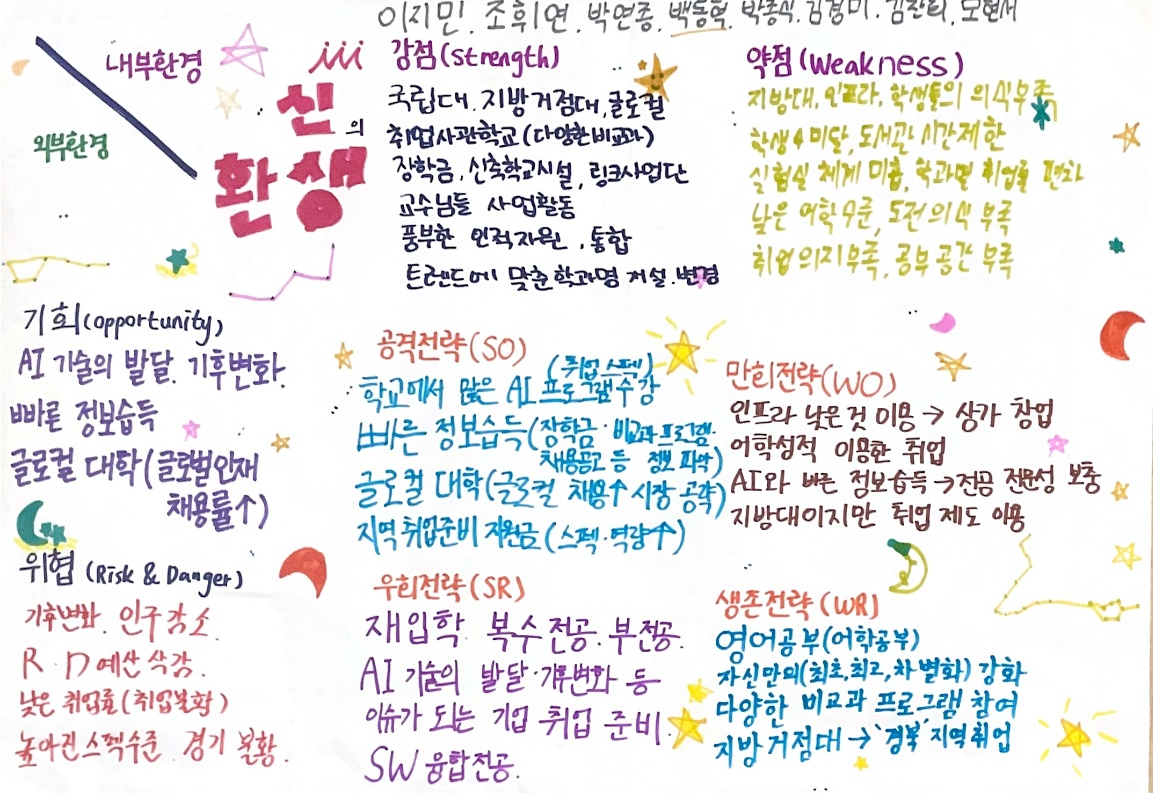 이지민, 조휘연, 박연종, 백동혁, 박종식, 김경미, 김찬희, 오현서
내부환경
외부환경
신의
환생
강점(Strength)
국립대, 지방거점대, 글로컬
취업사관학교(다양한 비교과)
장학금, 신축학교시설, 링크사업단
교수님들 사업활동
풍부한 인적자원, 통합
트렌드에 맞춘 학과명 개설·변경
약점(Weakness)
지방대, 인프라, 학생들의 의식부족
학생수 미달, 도서관 시간제한
실험실 체계 미흡, 학과별 취업률 편차
낮은 어학수준, 도전의식 부족
취업의지부족, 공부공간 부족
기회(opportunity)
AI 기술의 발달. 기후변화.
빠른 정보습득
글로컬 대학(글로벌인재
채용률↑)
공격전략(SO)
(취업스펙)
학교에서 많은 AI 프로그램수강
빠른 정보습득(장학금·비교과프로그램·
채용공고 등 정보 파악)
글로컬 대학(글로컬 채용↑ 시장 공략)
지역 취업준비 지원금(스펙·역량↑)
만회전략(WO)
인프라 낮은것 이용 → 상가 창업
어학성적 이용한 취업
AI와 빠른 정보습득→전공 전문성 보충
지방대이지만 취업 제도 이용
위협(Risk & Danger)
기후변화. 인구감소.
R·D예산 삭감.
낮은 취업률(취업불황)
높아진스펙수준. 경기 불황.
우회전략(SR)
재입학. 복수전공. 부전공.
AI 기술의 발달·기후변화 등
이슈가 되는 기업 취업 준비.
SW 융합전공.
생존전략(WR)
영어공부(어학공부)
자신만의(최초,최고,차별화) 강화
다양한 비교과 프로그램 참여
지방거점대→'경북'지역취업